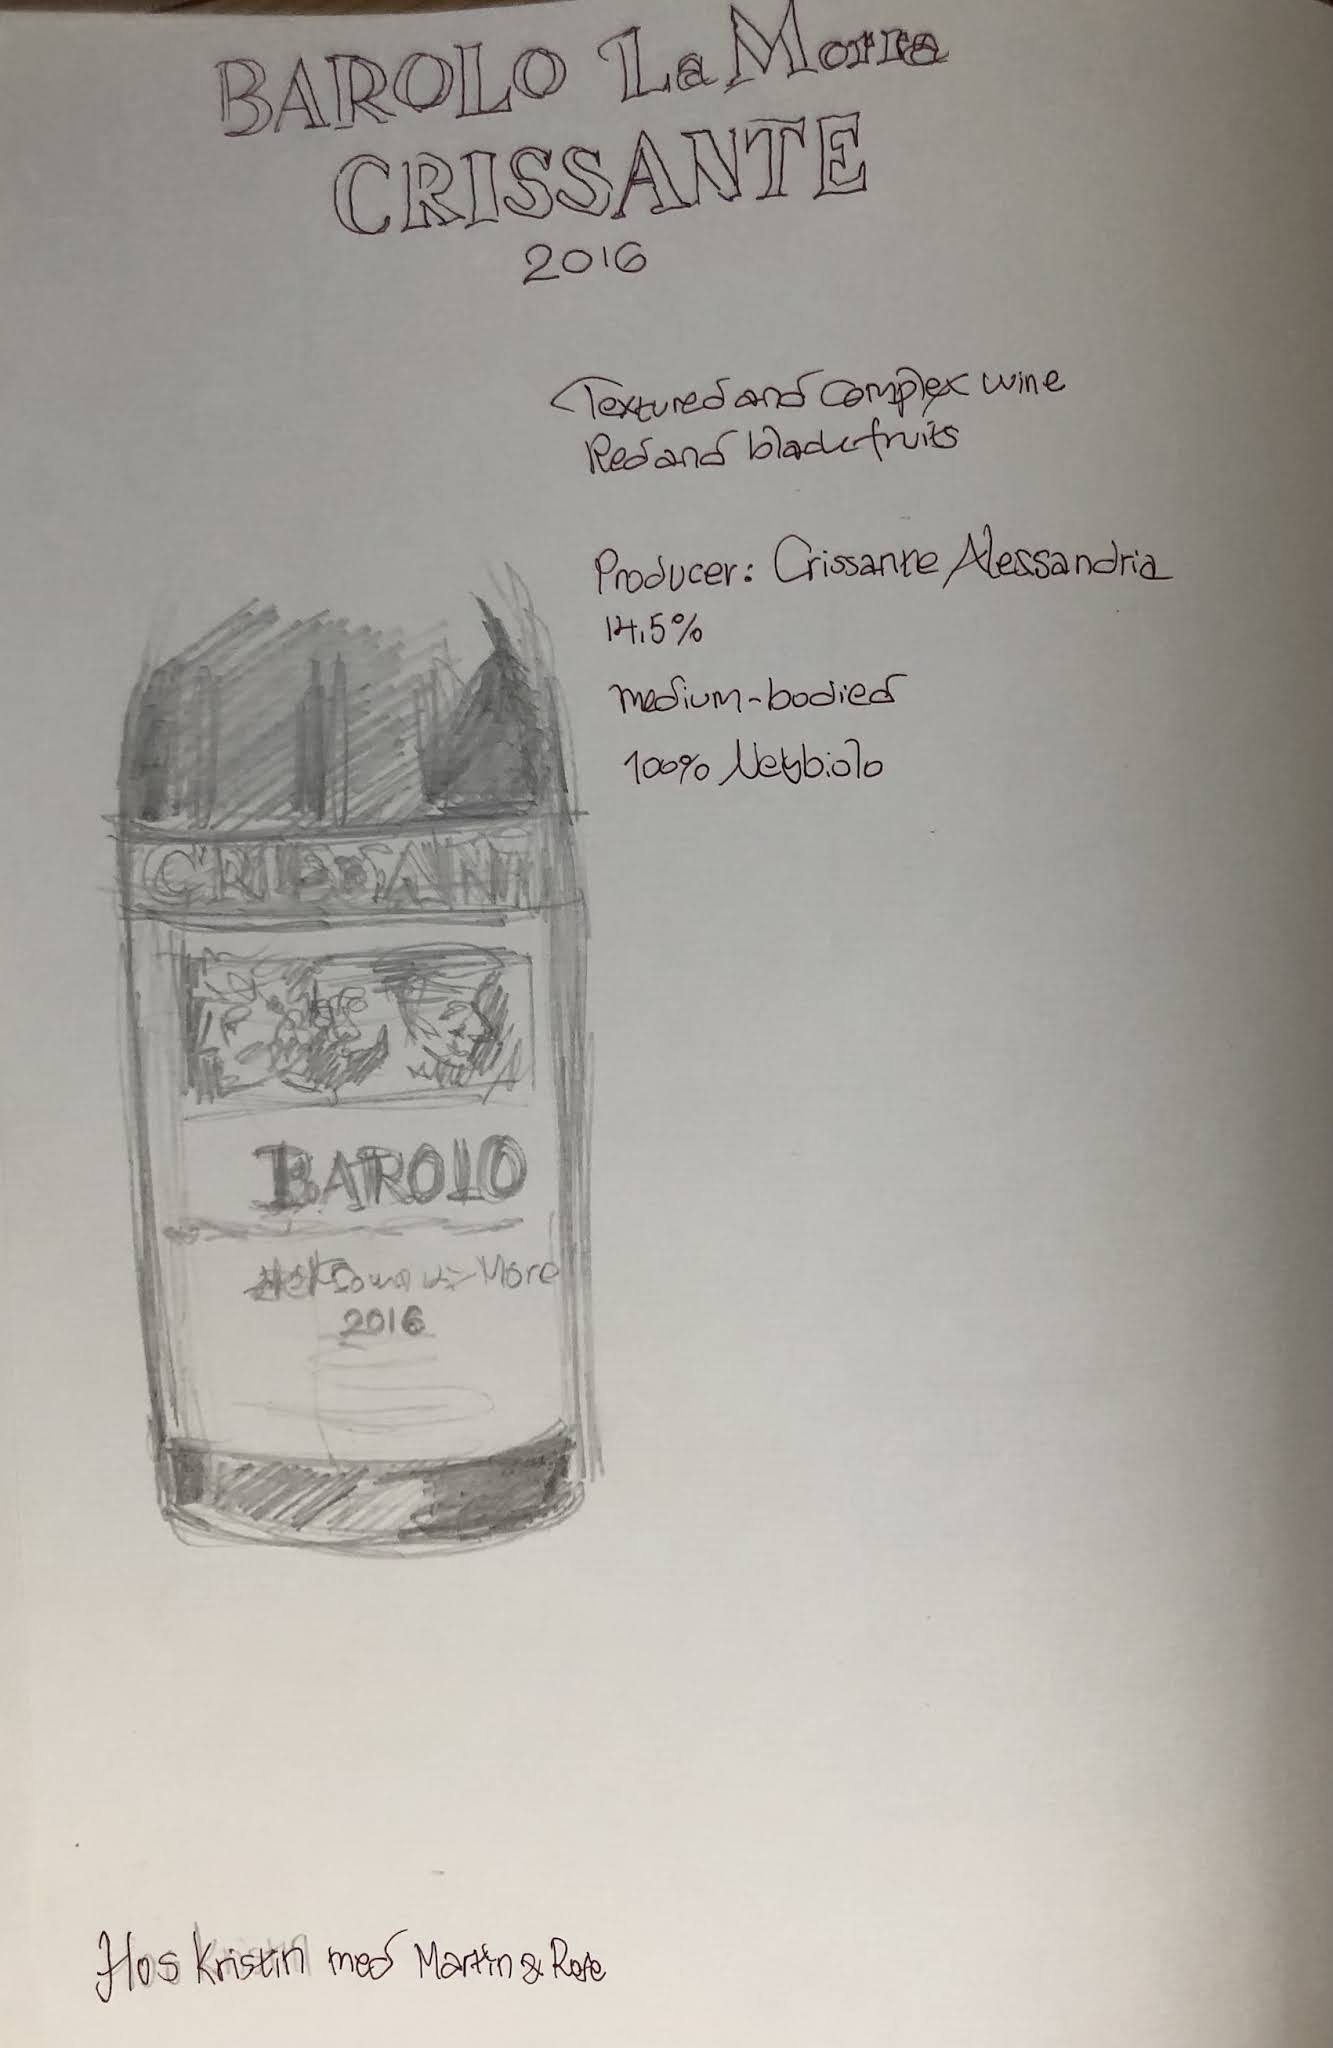 BAROLO La Morra
CRISSANTE
2016
Textured and complex wine
Red and black fruits
Producer: Crissante Alessandria
14,5%
medium-bodied
100% Nebbiolo
CRISSANT
BAROLO
More
2016
Hos Kristin med Martin &